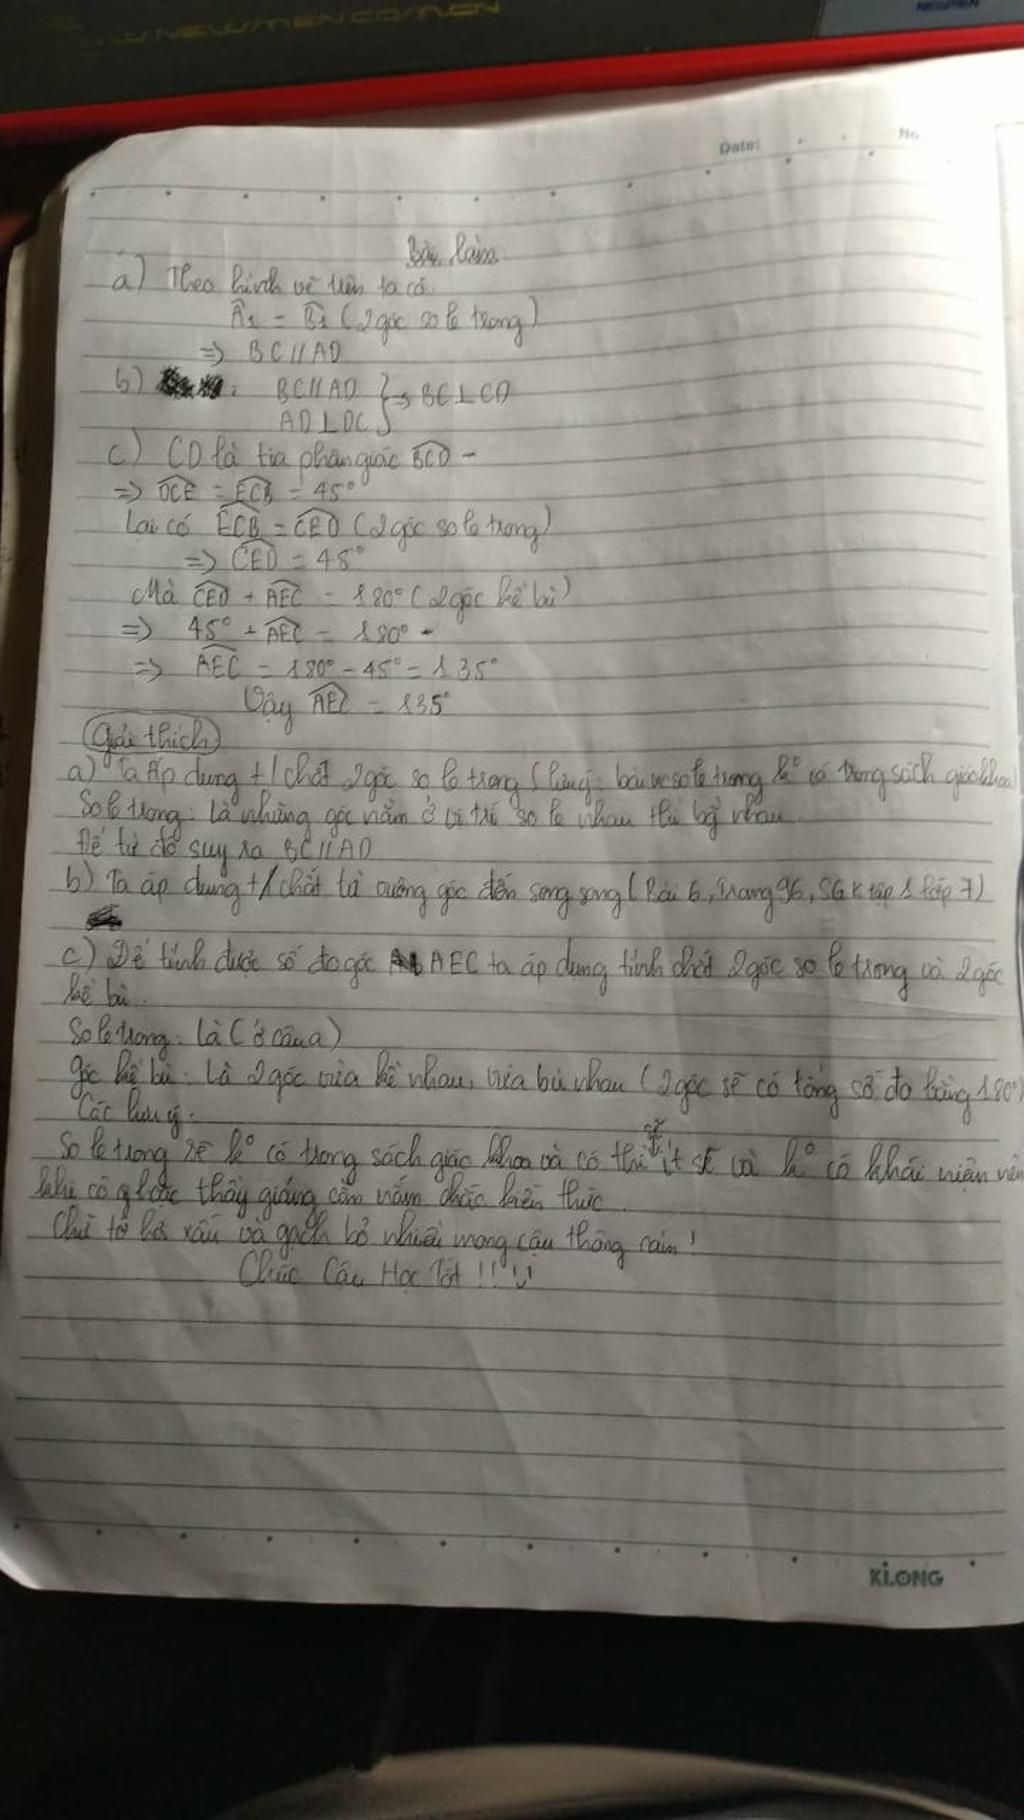 WWW.NEWMENCOM.CN
NEWMEN
Date:
No
Bài làm
a) Theo hình vẽ trên ta có.
Â1 = B̂1 (2 góc so le trong)
=> BC // AD
b) BC // AD
AD ⊥ DC } => BC ⊥ CD
c) CD là tia phân giác BCD
=> DCE = ECB = 45°
Lại có ECB = CED (2 góc so le trong)
=> CED = 45°
Mà CED + AEC = 180° (2 góc kề bù)
=> 45° + AEC = 180°
=> AEC = 180° - 45° = 135°
Vậy AEC = 135°
Giải thích
a) Ta Áp dụng t/chất 2 góc so le trong (lưu ý: bài về so le trong k° có trong sách giáo khoa)
So le trong: Là những góc nằm ở vị trí so le nhau thì bằng nhau.
Để từ đó suy ra BC // AD
b) Ta áp dụng t/chất từ vuông góc đến song song (Bài 6, trang 96, SGK tập 1 lớp 7)
c) Để tính được số đo góc AEC ta áp dụng tính chất 2 góc so le trong và 2 góc
kề bù.
So le trong: là (ở câu a)
góc kề bù: Là 2 góc vừa kề nhau, vừa bù nhau (2 góc sẽ có tổng số đo bằng 180°)
Các lưu ý:
So le trong sẽ k° có trong sách giáo khoa và có thi sẽ ít và k° có khái niệm nên
khi cô hoặc thầy giảng cần nắm chắc kiến thức.
Chữ tớ hơi xấu và gạch bỏ nhiều mong cậu thông cảm!
Chúc Cậu Học Tốt !!!
KLONG